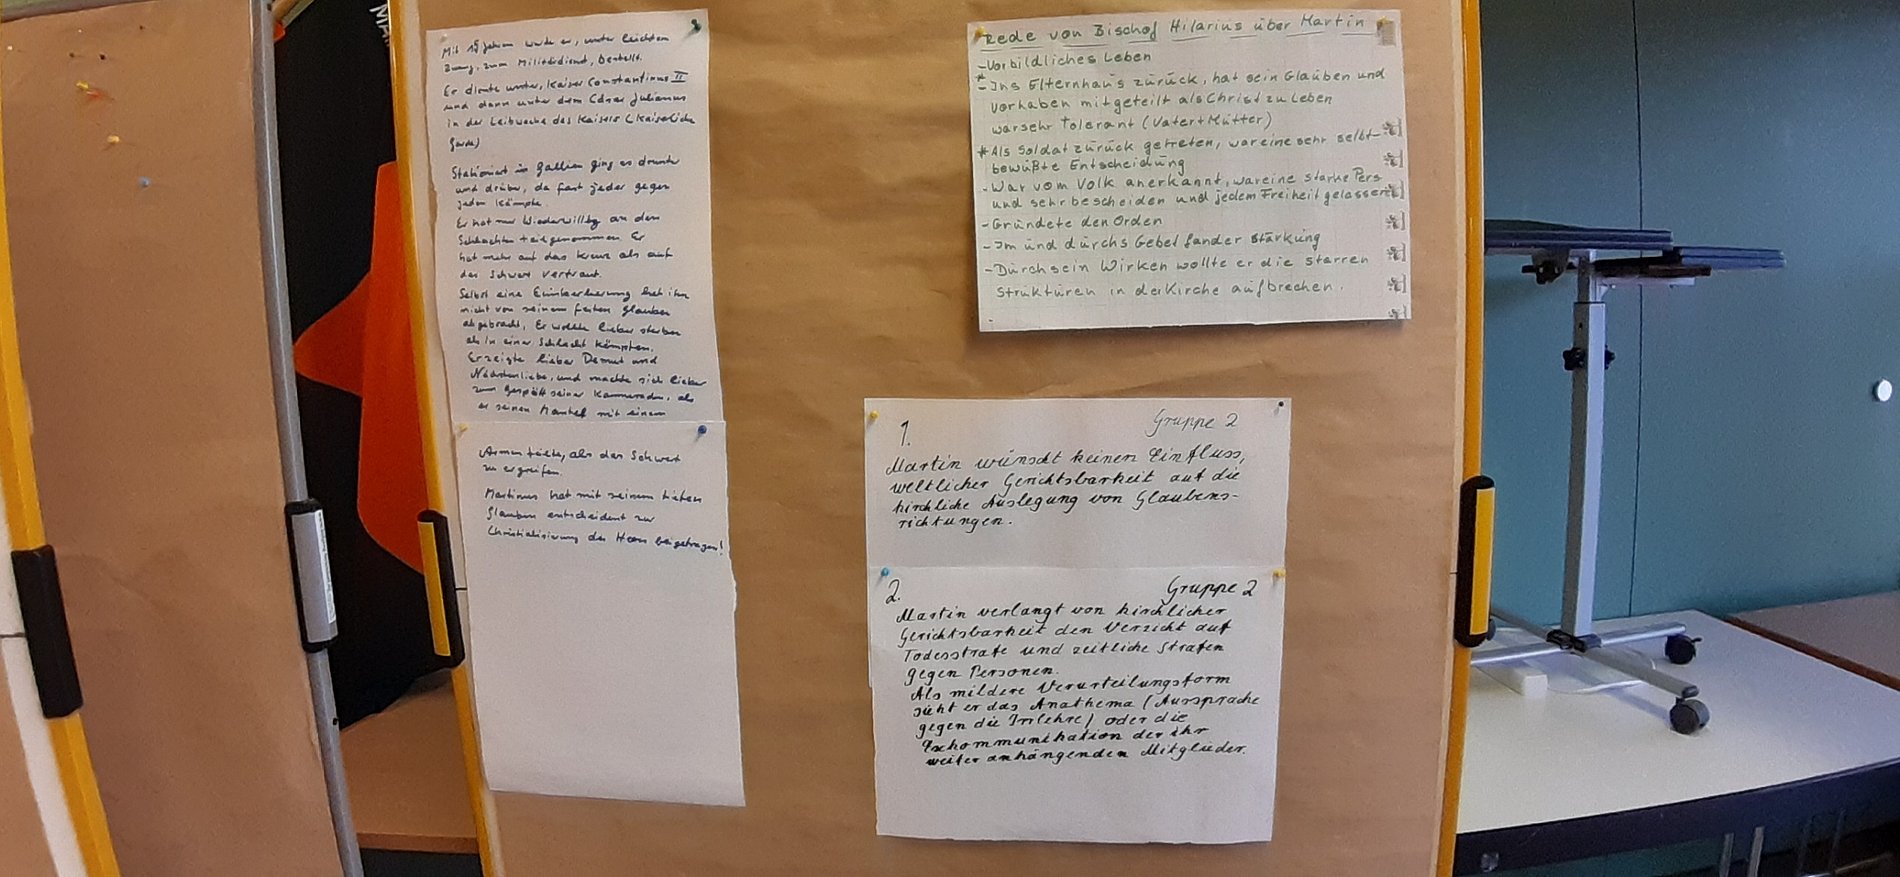 MA
Mit 15 Jahren wurde er, unter leichtem
Zwang, zum Militärdienst, bestellt.
Er diente unter, Kaiser Constantinus II
und dann unter dem Cäsar Julianus
in der Leibwache des Kaisers (Kaiserliche
Garde)
Stationiert in Gallien ging es drunter
und drüber, da fast jeder gegen
jeden kämpfte.
Er hat nur Wiederwillig an den
Schlachten teilgenommen. Er
hat mehr auf das Kreuz als auf
das Schwert vertraut.
Selbst eine Einkerkerung hat ihn
nicht von seinem festen Glauben
abgebracht. Er wollte lieber sterben
als in einer Schlacht kämpfen.
Er zeigte lieber Demut und
Nächstenliebe, und machte sich lieber
zum Gespött seiner Kammeraden, als
er seinen Mantel mit einem
Armen teilte, als das Schwert
zu ergreifen.
Martinus hat mit seinem tiefen
Glauben entscheident zur
Christialisierung des Heeres beigetragen!
Rede von Bischof Hilarius über Martin
- Vorbildliches Leben
* - Ins Elternhaus zurück, hat sein Glauben und
Vorhaben mitgeteilt als Christ zu Leben
war sehr Tolerant (Vater + Mutter)
* Als Soldat zurück getreten, war eine sehr selbt-
bewußte Entscheidung
- War vom Volk anerkannt, war eine starke Pers
und sehr bescheiden und jedem Freiheit gelassen
- Gründete den Orden
- Im und durchs Gebet fand er Stärkung
- Durch sein Wirken wollte er die starren
Strukturen in der Kirche aufbrechen.
1. Gruppe 2
Martin wünscht keinen Einfluss,
weltlicher Gerichtsbarkeit auf die
kirchliche Auslegung von Glaubens-
richtungen.
2. Gruppe 2
Martin verlangt von kirchlicher
Gerichtsbarkeit den Verzicht auf
Todesstrafe und zeitliche Strafen
gegen Personen.
Als mildere Verurteilungsform
sieht er das Anathema (Aussprache
gegen die Irrlehre) oder die
Exkommunikation der ihr
weiter anhängenden Mitglieder.